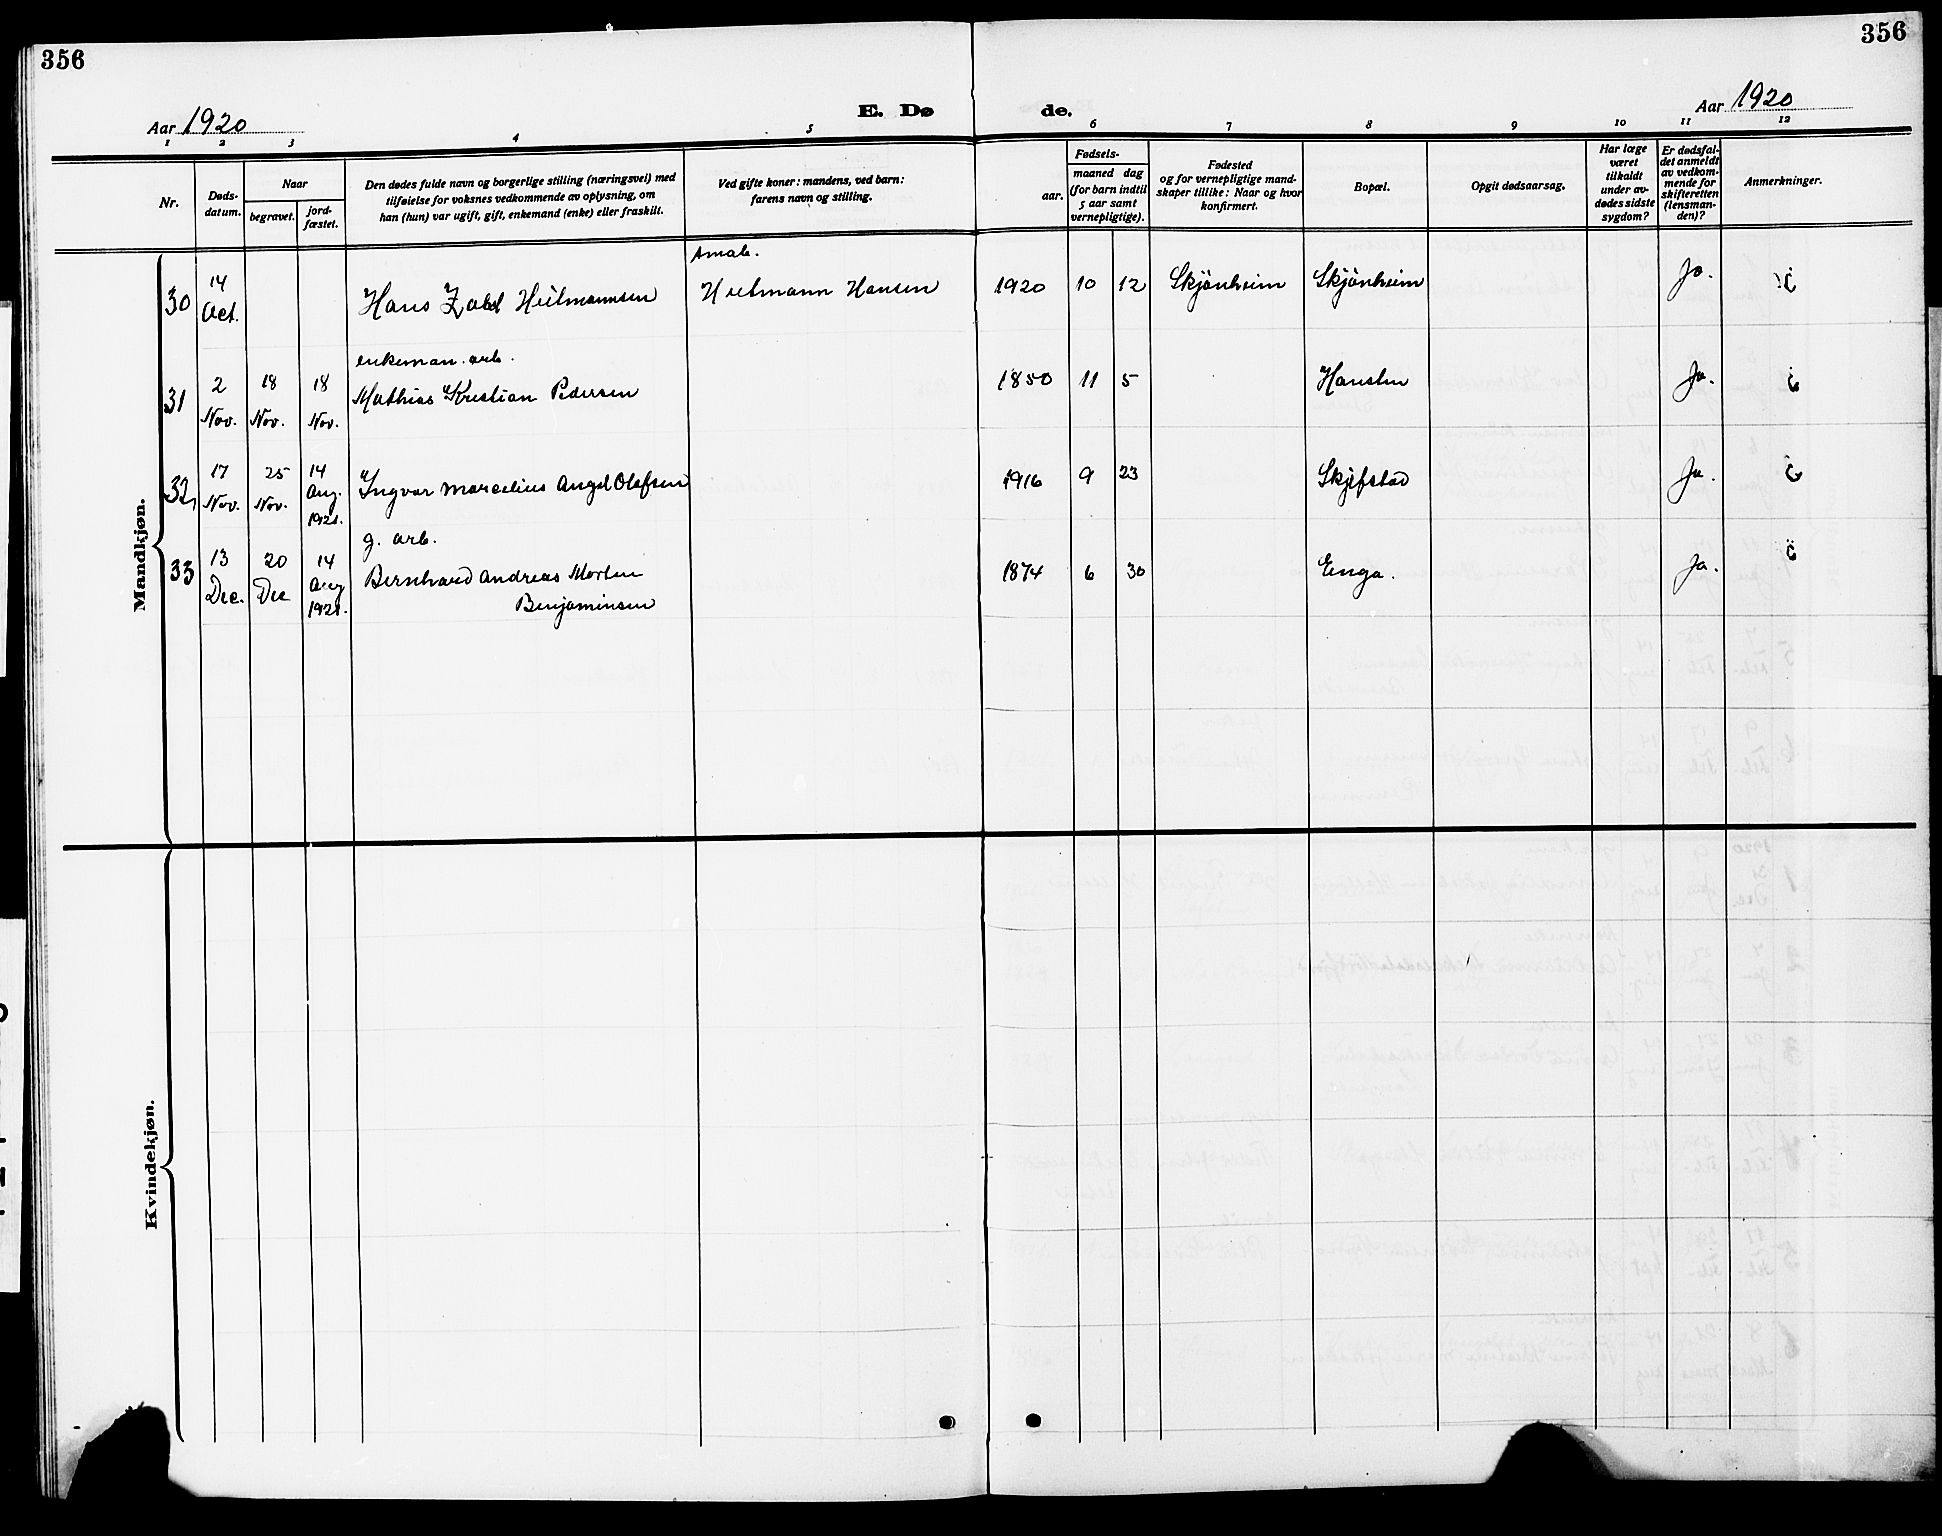 356
356
Aar 1920
E. Dø
de.
Aar 1920
1 2 3 4 5 6 7 8 9 10 11 12
Nr.
Døds-
datum.
Naar
begravet.
jord-
fæstet.
Den dødes fulde navn og borgerlige stilling (næringsvei) med
tilføielse for voksnes vedkommende av oplysning, om
han (hun) var ugift, gift, enkemand (enke) eller fraskilt.
Ved gifte koner: mandens, ved barn:
farens navn og stilling.
Fødsels-
aar.
maaned dag
(for barn indtil
5 aar samt
vernepligtige).
Fødested
og for vernepligtige mand-
skaper tillike: Naar og hvor
konfirmert.
Bopæl.
Opgit dødsaarsag.
Har læge
været
tilkaldt
under av-
dødes sidste
sygdom?
Er dødsfal-
det anmeldt
av vedkom-
mende for
skifteretten
(lensman-
den)?
Anmerkninger.
Mandkjøn.
30
14
Oct.
Hans Heitmannsen
Heitmann Hansen
1920 10 12 Skjönheim Skjönheim Ja.
enkeman. arb.
31
2
Nov.
18
Nov.
18
Nov.
Mathias Kristian Pedersen
1850 11 5 Ja.
32
17
Nov.
25
Nov.
14
Aug.
1921.
Ingvar Marcelius Angel Olafsen
1916 9 23 Skjefstad Ja.
g. arb.
33
13
Dec.
20
Dec
14
Aug
1921.
Bernhard Andreas Morten
Benjaminsen
1874 6 30 Enga. Ja.
Kvindekjøn.